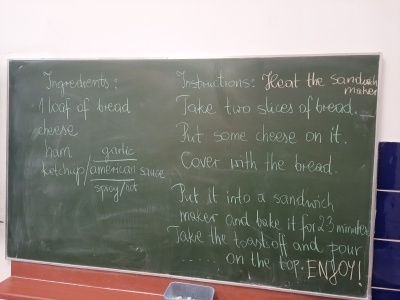 Ingredients:
1 loaf of bread
cheese
ham
garlic
ketchup/american sauce
spicy/hot
Instructions: Heat the sandwich
maker
Take two slices of bread.
Put some cheese on it.
Cover with the bread.
Put it into a sandwich
maker and bake it for 23 minutes
Take the toast off and pour
...... on the top. ENJOY!